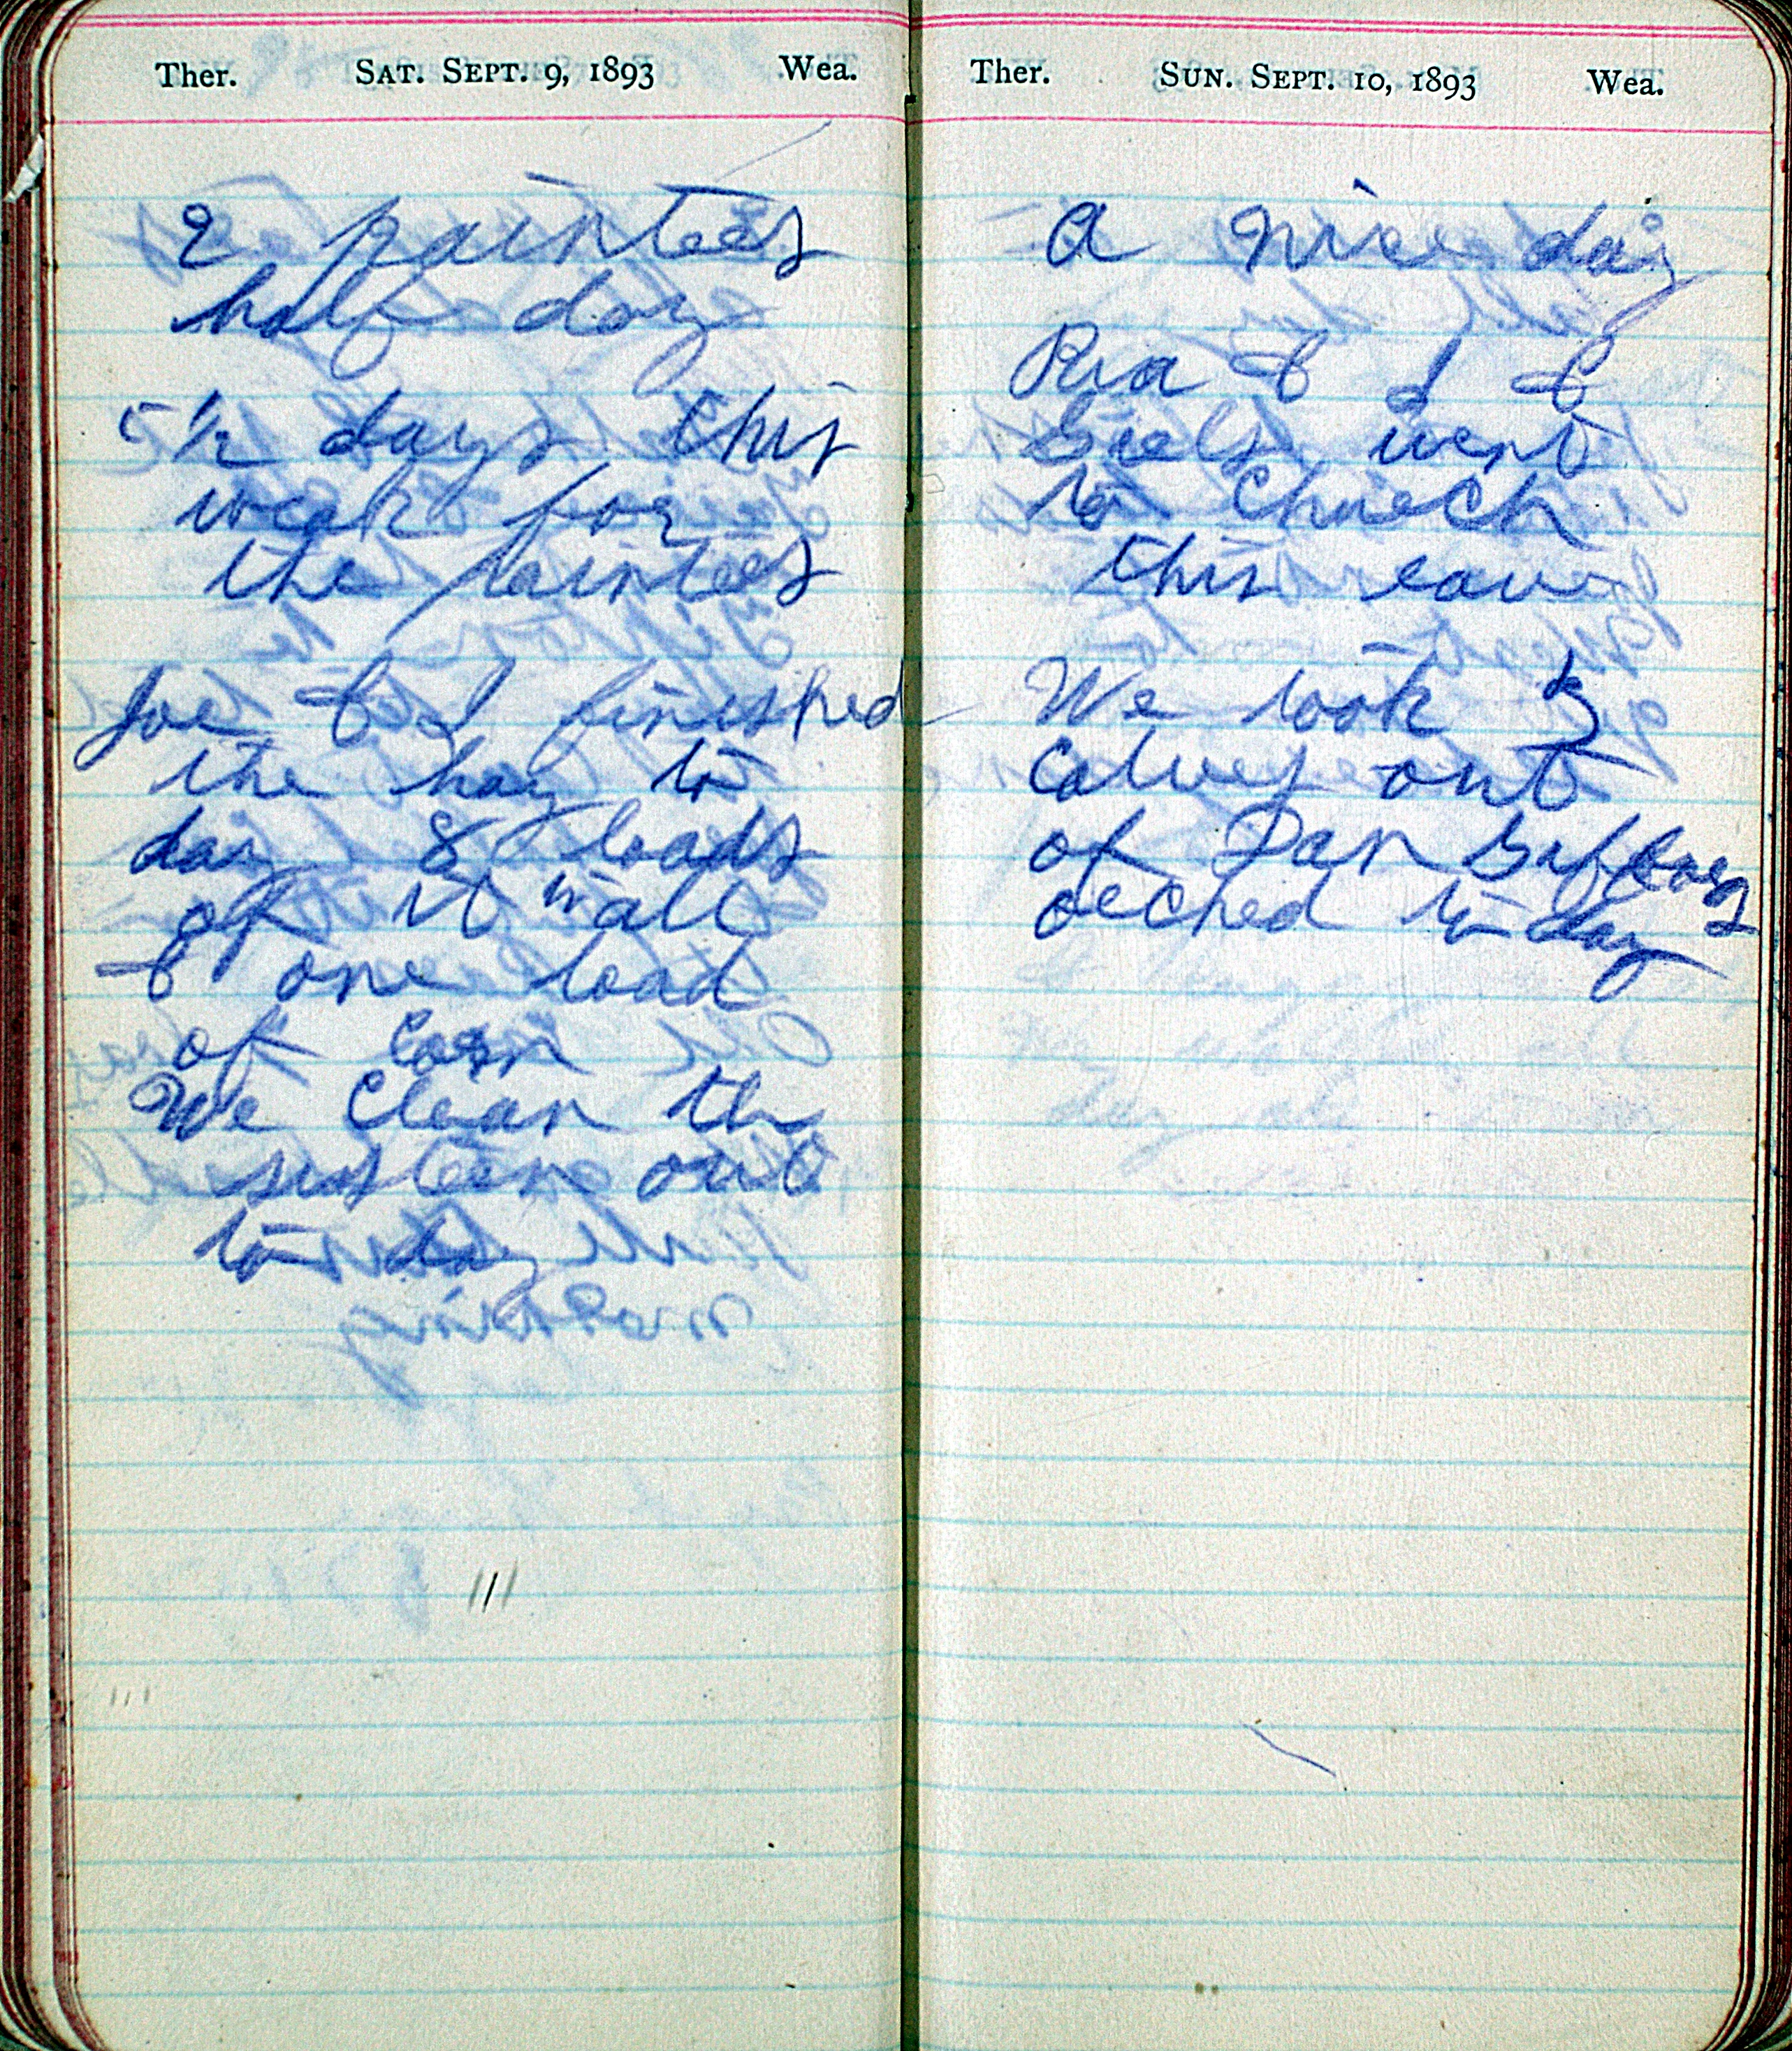 Ther. SAT. SEPT. 9, 1893 Wea.
2 painters
half day
5 1/2 days this
weak for
the painters
Joe & I finished
the hay to
day 8 loads
of it in all
& one load
of corn
We clean the
sistern out
to day
Ther. SUN. SEPT. 10, 1893 Wea.
A nice day
& I &
Girls went
to Church
this eave
We took 3
Calves out
of Dan
orched to day